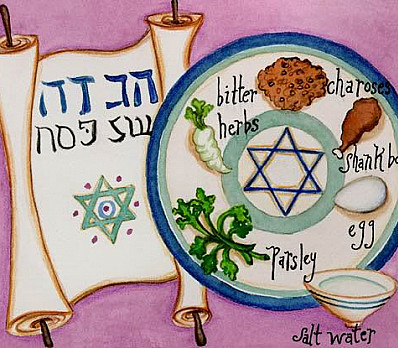 הגדה
של פסח
bitter
herbs
charoses
shank bo
egg
Parsley
salt water